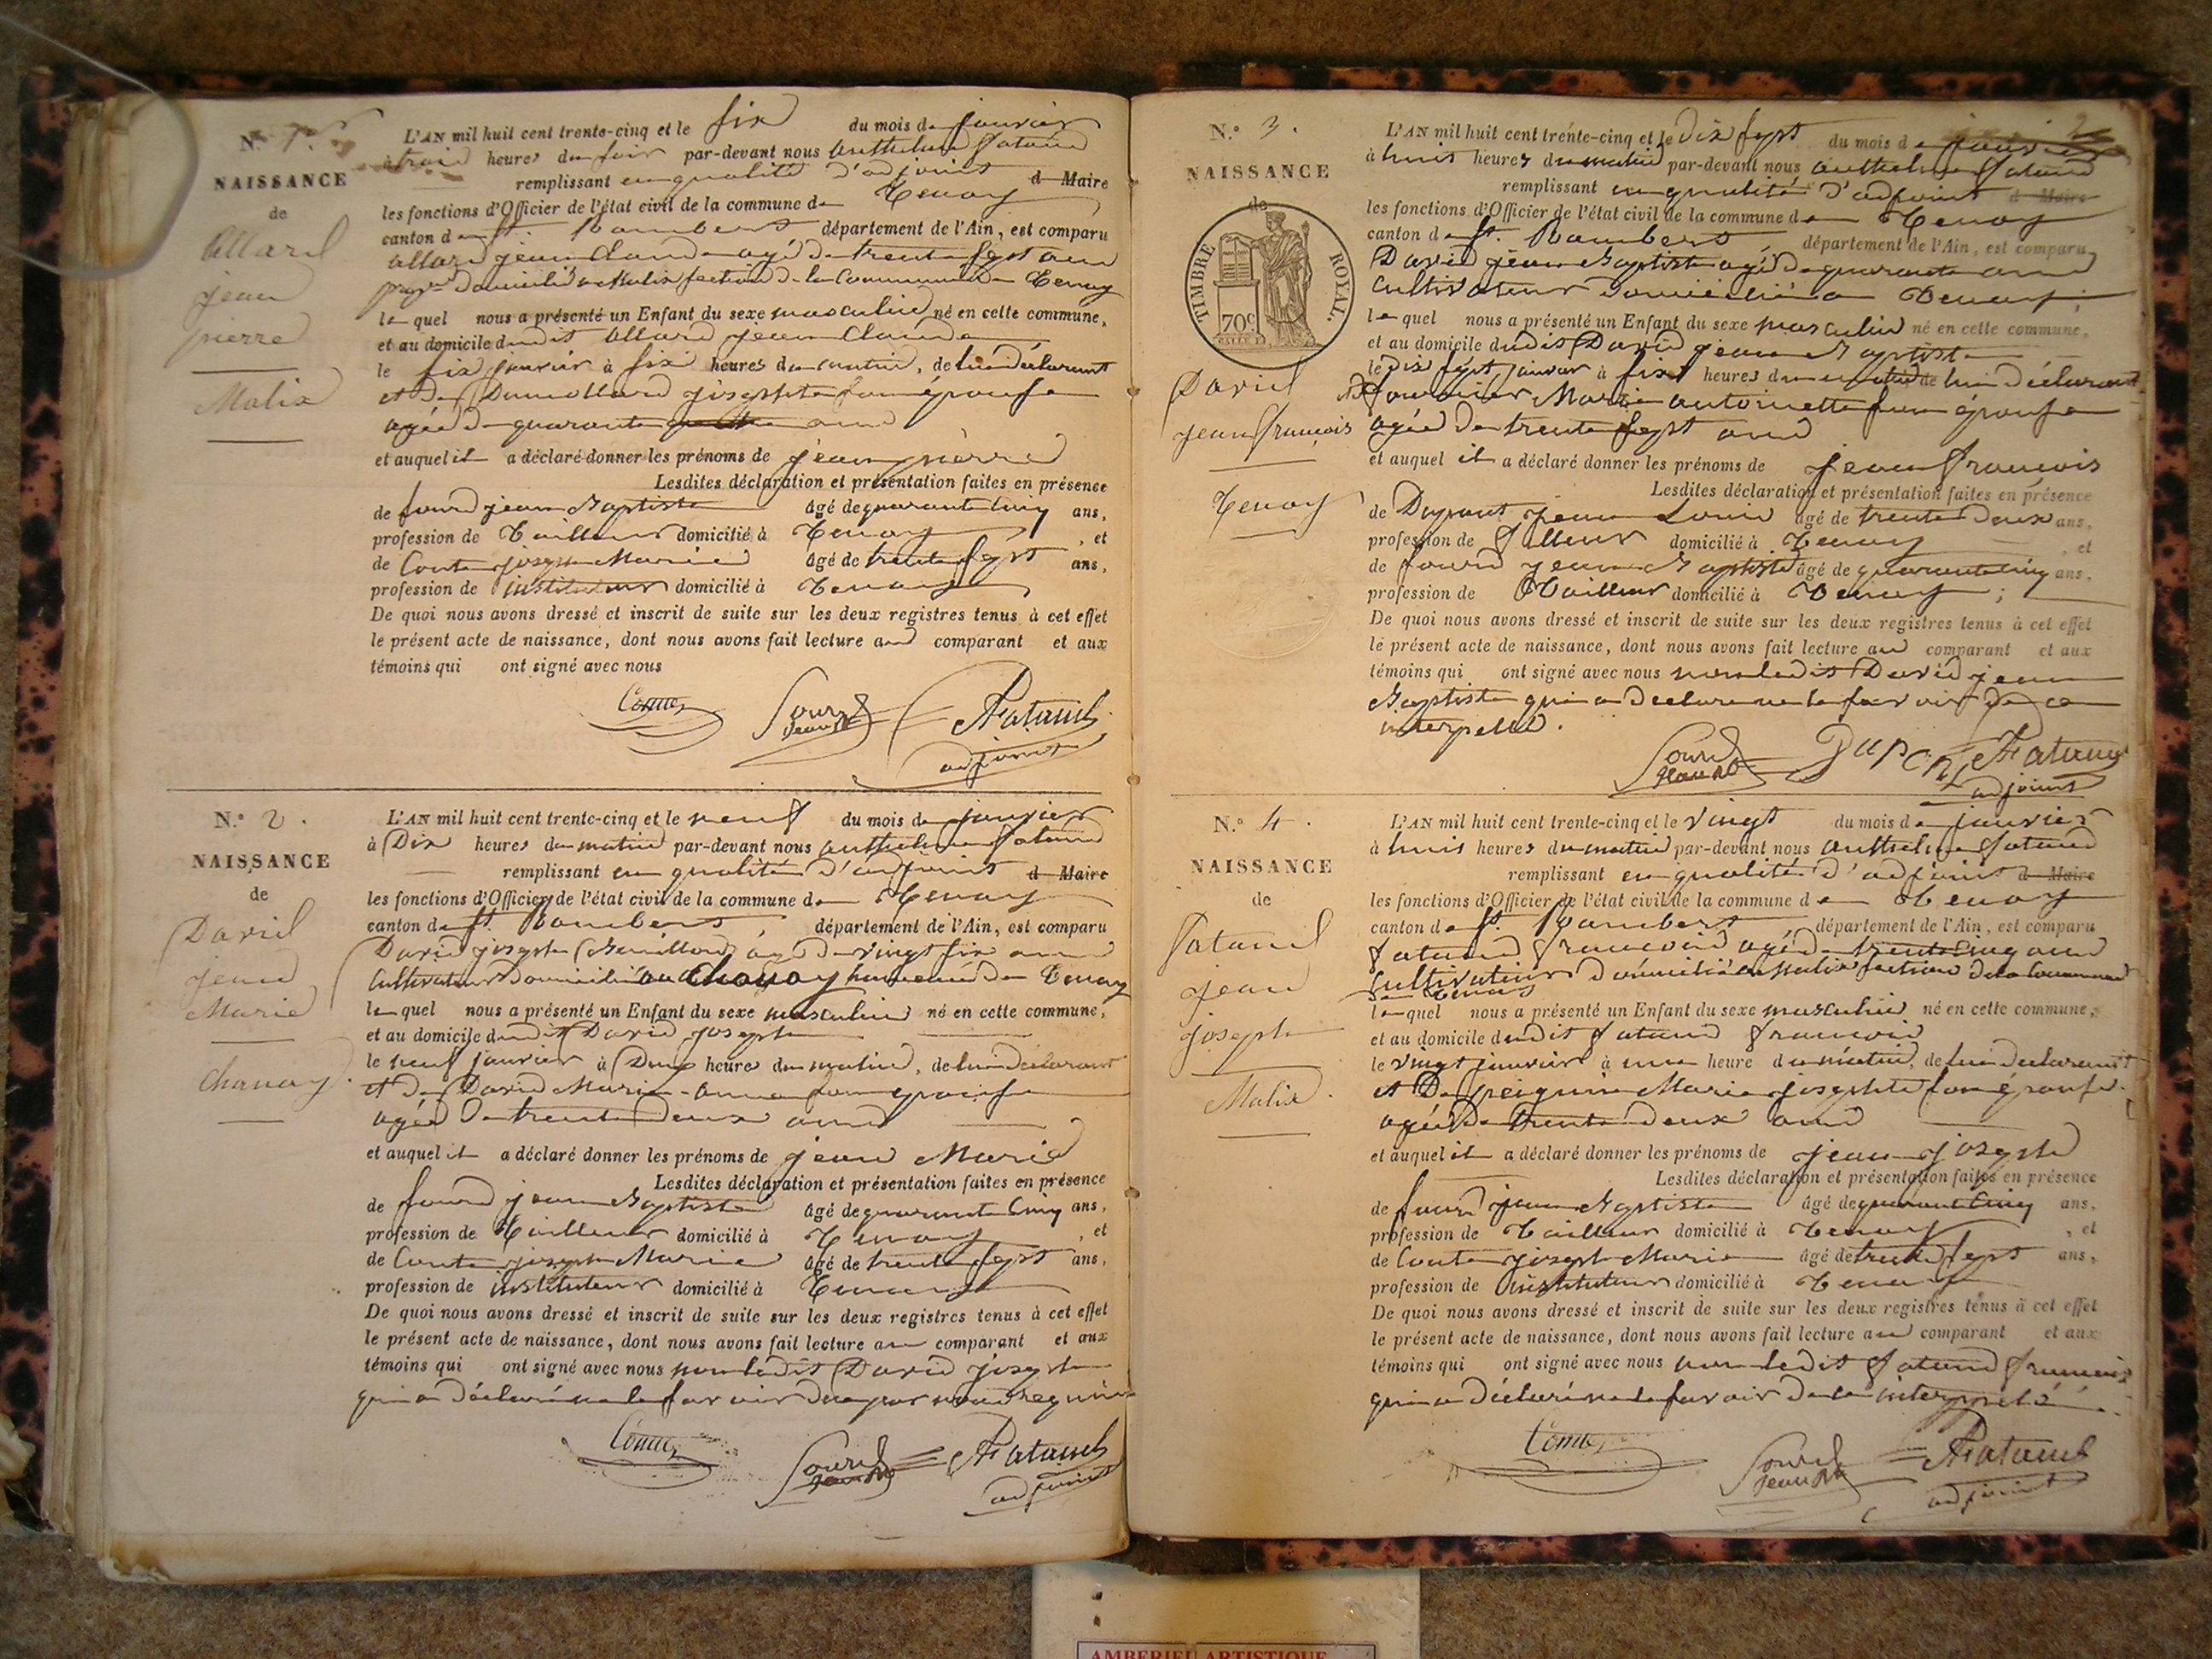 N.° 1.er
NAISSANCE
de
Allard
jean
pierre
Malix
L'AN mil huit cent trente-cinq et le six du mois de janvier
à trois heures du soir par-devant nous anthelme fatand
remplissant en qualité d'adjoint d Maire
les fonctions d'Officier de l'état civil de la commune de Tenay
canton de st. Rambert département de l'Ain, est comparu
allard jean Claude agé de trente sept ans
domicilié a Malix section de la Commune de Tenay
lequel nous a présenté un Enfant du sexe masculin né en cette commune,
et au domicile dudit allard jean Claude
le six janvier à six heures du matin, de lui déclarant
et de Dumollard josephte son épouse
agée de quarante ans
et auquel il a déclaré donner les prénoms de jean pierre
Lesdites déclaration et présentation faites en présence
de sourd jean Baptiste âgé de quarante Cinq ans,
profession de Tailleur domicilié à Tenay , et
de Conte joseph Marie âgé de trente sept ans,
profession de instituteur domicilié à Tenay
De quoi nous avons dressé et inscrit de suite sur les deux registres tenus à cet effet
le présent acte de naissance, dont nous avons fait lecture au comparant et aux
témoins qui ont signé avec nous
Conte Sourd jean Bte Fatand
adjoint
N.° 2.
NAISSANCE
de
David
jean
Marie
Chanay.
L'AN mil huit cent trente-cinq et le neuf du mois de janvier
à Dix heures du matin par-devant nous anthelme fatand
remplissant en qualité d'adjoint d Maire
les fonctions d'Officier de l'état civil de la commune de Tenay
canton de st. Rambert département de l'Ain, est comparu
David joseph agé de vingt six ans
Cultivateur domicilié au Chanay hameau de Tenay
lequel nous a présenté un Enfant du sexe masculin né en cette commune,
et au domicile dudit David joseph
le neuf janvier à Deux heures du matin, de lui déclarant
et de David Marie-anne son epouse
agée de trente deux ans
et auquel il a déclaré donner les prénoms de jean Marie
Lesdites déclaration et présentation faites en présence
de sourd jean Baptiste âgé de quarante Cinq ans,
profession de Tailleur domicilié à Tenay , et
de Conte joseph Marie âgé de trente sept ans,
profession de instituteur domicilié à Tenay
De quoi nous avons dressé et inscrit de suite sur les deux registres tenus à cet effet
le présent acte de naissance, dont nous avons fait lecture au comparant et aux
témoins qui ont signé avec nous non ledit David joseph
qui a déclaré ne le savoir de ce par nous requis
Conte Sourd jean Bte Fatand
adjoint
N.° 3.
NAISSANCE
de
TIMBRE ROYAL.
70c
David
jean françois
Tenay
L'AN mil huit cent trente-cinq et le Dix sept du mois de janvier
à huit heures du matin par-devant nous anthelme fatand
remplissant en qualité d'adjoint d Maire
les fonctions d'Officier de l'état civil de la commune de Tenay
canton de st. Rambert département de l'Ain, est comparu
David jean Baptiste agé de quarante ans
Cultivateur domicilié a Tenay
lequel nous a présenté un Enfant du sexe masculin né en cette commune,
et au domicile dudit David jean Baptiste
le dix sept janvier à six heures du matin de lui déclarant
et de fournier Marie antoinette son épouse
agée de trente sept ans
et auquel il a déclaré donner les prénoms de jean françois
Lesdites déclaration et présentation faites en présence
de Dupont jean Louis âgé de trente deux ans,
profession de domicilié à Tenay , et
de sourd jean Baptiste âgé de quarante cinq ans,
profession de Tailleur domicilié à Tenay ;
De quoi nous avons dressé et inscrit de suite sur les deux registres tenus à cet effet
le présent acte de naissance, dont nous avons fait lecture au comparant et aux
témoins qui ont signé avec nous non ledit David jean
Baptiste qui a declaré ne le savoir de ce
interpellé.
Sourd jean Bte Dupont Fatand
adjoint
N.° 4.
NAISSANCE
de
fatand
jean
joseph
Malix.
L'AN mil huit cent trente-cinq et le vingt du mois de janvier
à huit heures du matin par-devant nous anthelme fatand
remplissant en qualité d'adjoint d Maire
les fonctions d'Officier de l'état civil de la commune de Tenay
canton de st. Rambert département de l'Ain, est comparu
fatand françois agé de trente cinq ans
Cultivateur domicilié a Malix section de la Commune
de Tenay
lequel nous a présenté un Enfant du sexe masculin né en cette commune,
et au domicile dudit fatand françois
le vingt janvier à une heure du matin, de lui declarant
et De peiguin Marie josephte son épouse.
agée de trente deux ans
et auquel il a déclaré donner les prénoms de jean joseph
Lesdites déclaration et présentation faites en présence
de sourd jean Baptiste âgé de quarante Cinq ans,
profession de Tailleur domicilié à Tenay , et
de Conte joseph Marie âgé de trente sept ans,
profession de instituteur domicilié à Tenay
De quoi nous avons dressé et inscrit de suite sur les deux registres tenus à cet effet
le présent acte de naissance, dont nous avons fait lecture au comparant et aux
témoins qui ont signé avec nous non ledit fatand françois
qui a déclaré ne le savoir de ce interpellé.
Conte Sourd jean Bte Fatand
adjoint
AMBERIEU ARTISTIQUE